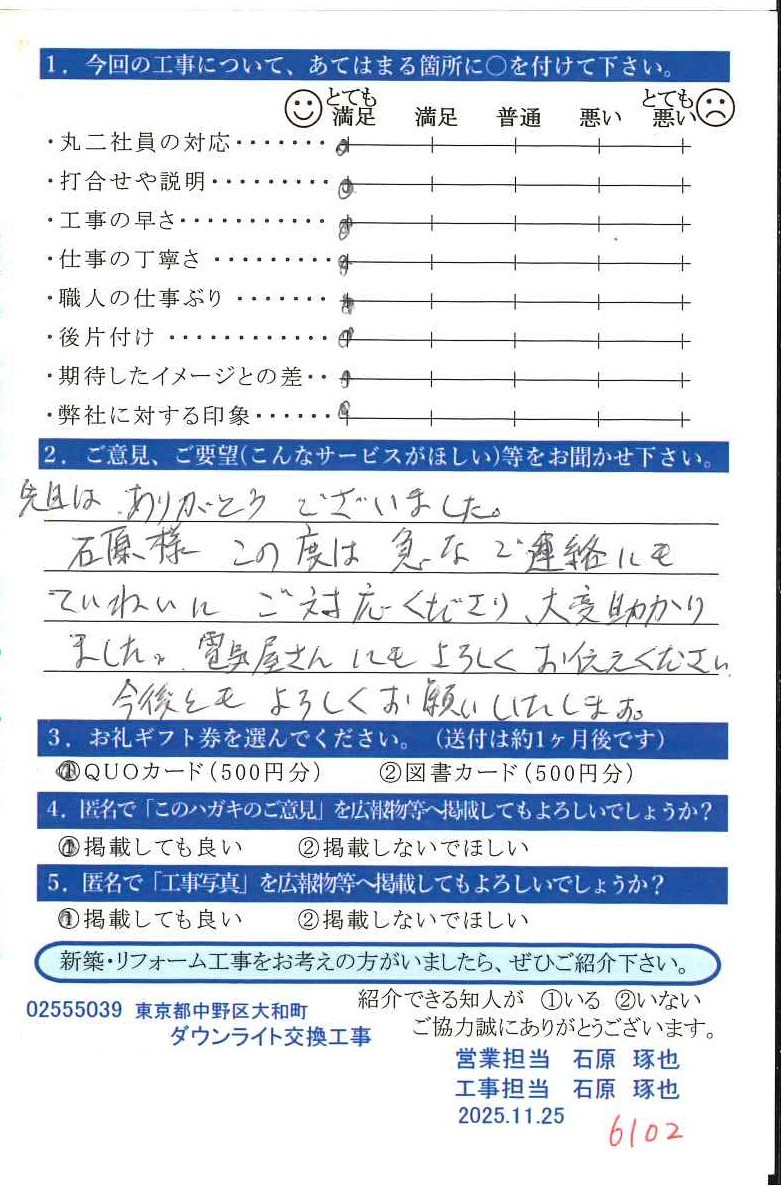 1．今回の工事について、あてはまる箇所に○を付けて下さい。
とても満足 満足 普通 悪い とても悪い
・丸二社員の対応・・・・・・・
・打合せや説明・・・・・・・・・
・工事の早さ・・・・・・・・・・・
・仕事の丁寧さ・・・・・・・・・
・職人の仕事ぶり・・・・・・・
・後片付け・・・・・・・・・・・・
・期待したイメージとの差・・
・弊社に対する印象・・・・・・
2．ご意見、ご要望(こんなサービスがほしい)等をお聞かせ下さい。
先日は ありがとうございました。
石原様 この度は 急なご連絡にも
ていねいに ご対応くださり、大変助かり
ました。電気屋さんにもよろしくお伝えください
今後ともよろしくお願いいたします。
3．お礼ギフト券を選んでください。（送付は約1ヶ月後です）
①QUOカード（500円分） ②図書カード（500円分）
4．匿名で「このハガキのご意見」を広報物等へ掲載してもよろしいでしょうか？
①掲載しても良い ②掲載しないでほしい
5．匿名で「工事写真」を広報物等へ掲載してもよろしいでしょうか？
①掲載しても良い ②掲載しないでほしい
新築・リフォーム工事をお考えの方がいましたら、ぜひご紹介下さい。
紹介できる知人が ①いる ②いない
02555039 東京都中野区大和町
ご協力誠にありがとうございます。
ダウンライト交換工事
営業担当 石原 琢也
工事担当 石原 琢也
2025.11.25
6102